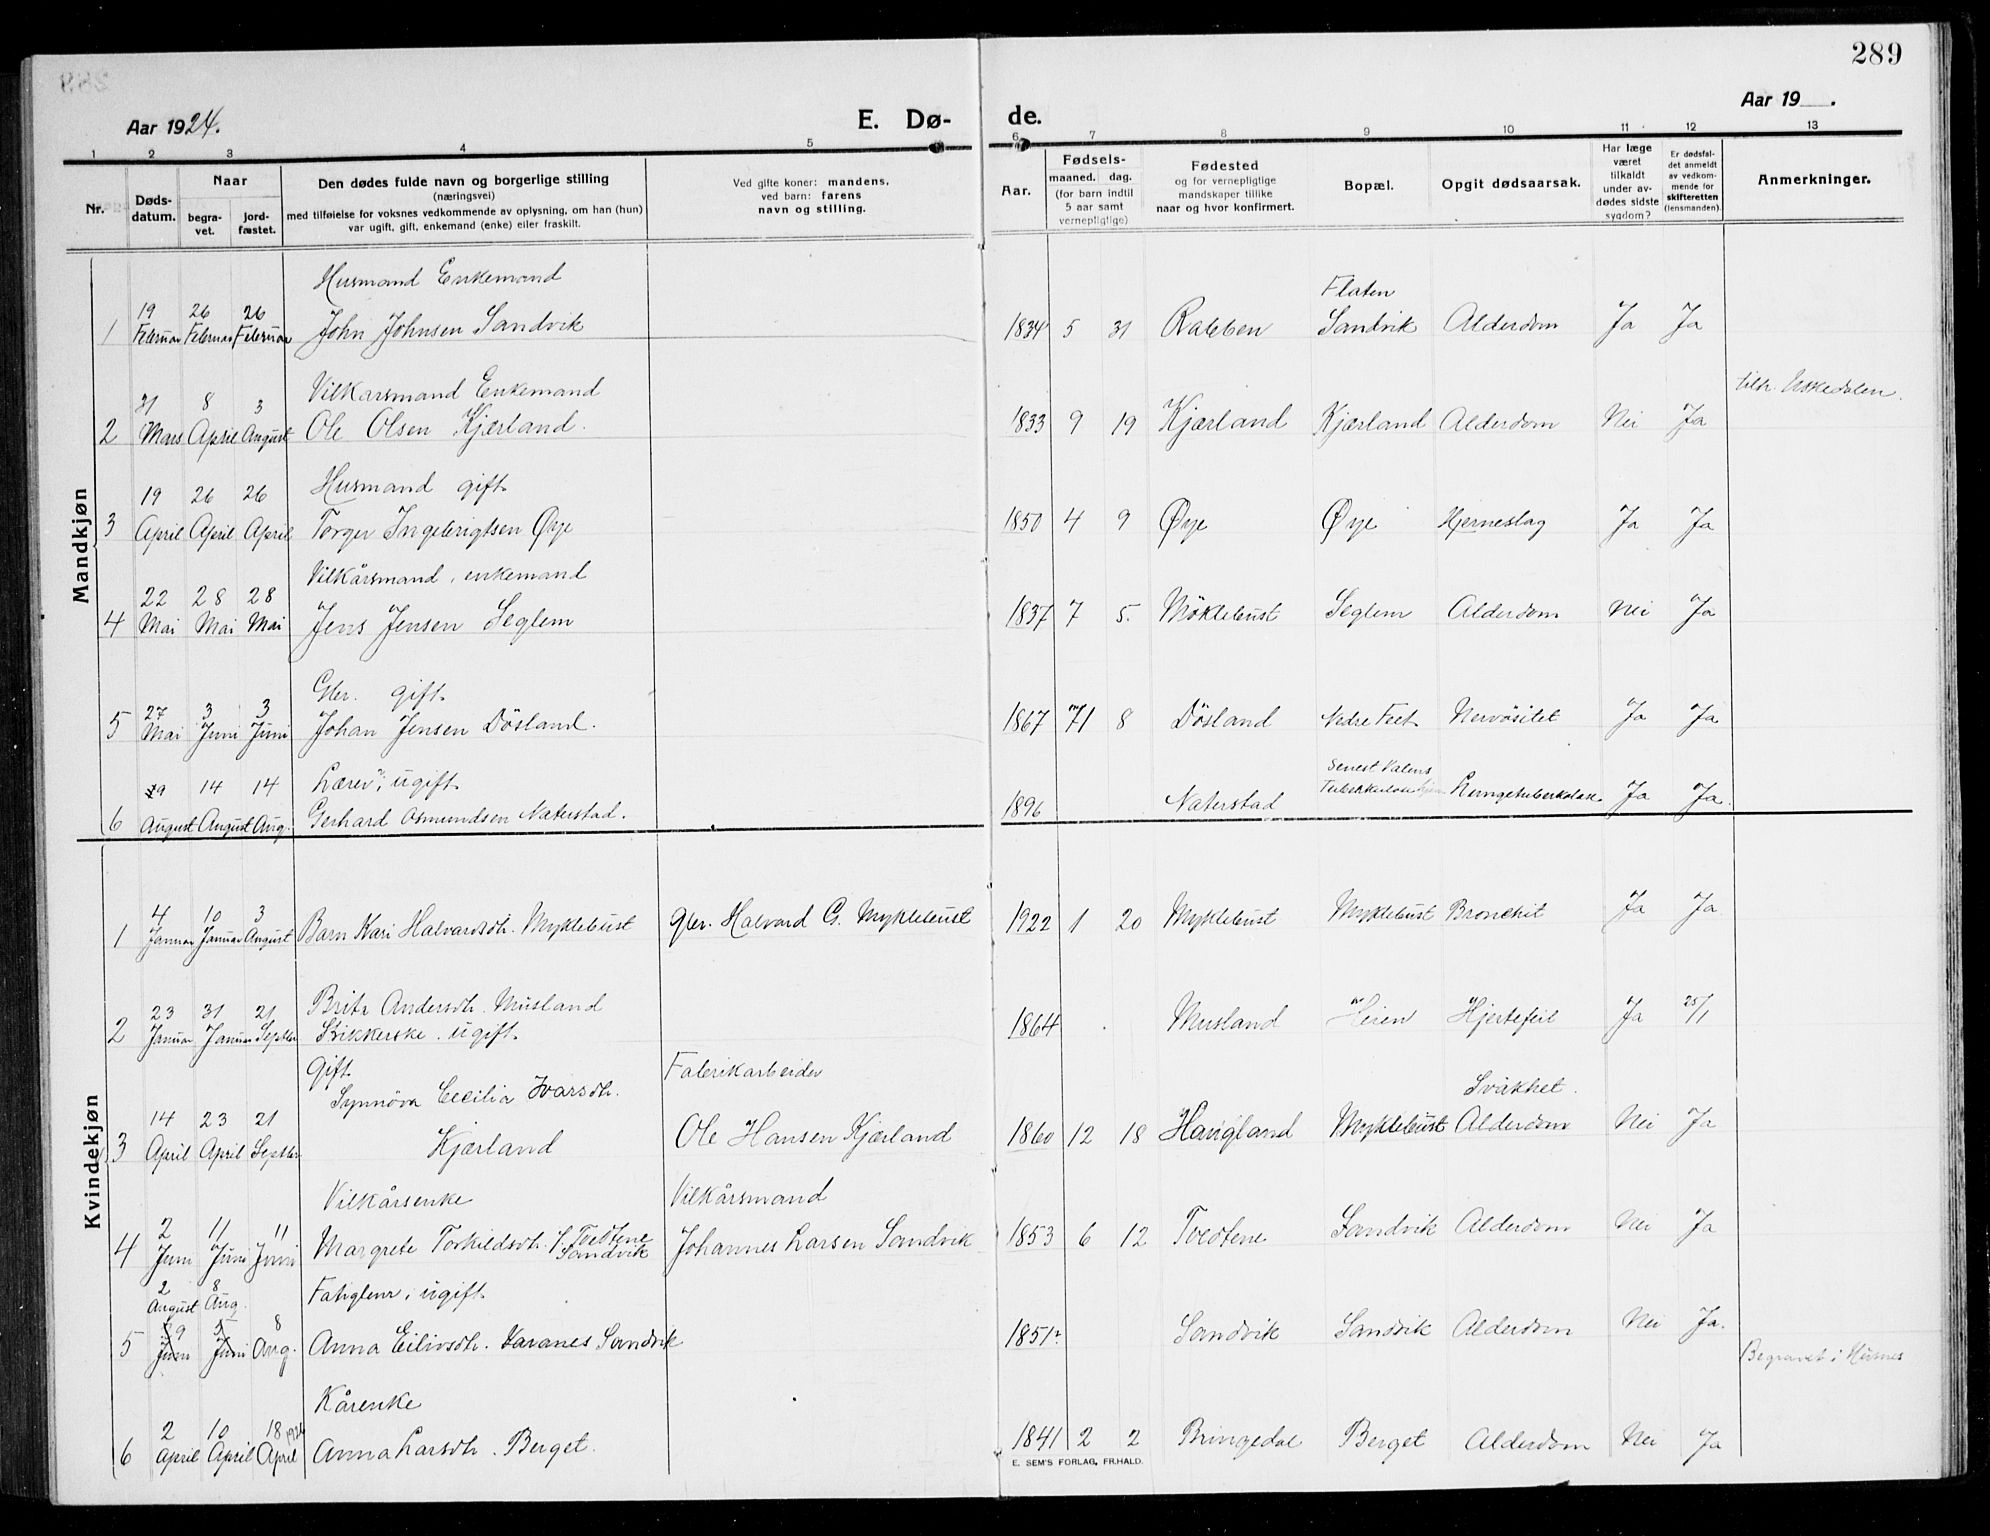 289
Aar 1924.
E. Dø- de.
Aar 19 .
1 2 3 4 5 6 7 8 9 10 11 12 13
Nr. Døds-datum. Naar begra-vet. jord-fæstet.
Den dødes fulde navn og borgerlige stilling
(næringsvei)
med tilføielse for voksnes vedkommende av oplysning, om han (hun)
var ugift, gift, enkemand (enke) eller fraskilt.
Ved gifte koner: mandens,
ved barn: farens
navn og stilling.
Aar.
Fødsels-
maaned. dag.
(for barn indtil
5 aar samt
vernepligtige)
Fødested
og for vernepligtige
mandskaper tillike
naar og hvor konfirmert.
Bopæl.
Opgit dødsaarsak.
Har læge
været
tilkaldt
under av-
dødes sidste
sygdom?
Er dødsfal-
det anmeldt
av vedkom-
mende for
skifteretten
(lensmanden).
Anmerkninger.
Mandkjøn
Husmand Enkemand Flaten
19 26 26
1 Februar Februar Februar John Johnsen Sandvik 1834 5 31 Rabben Sandvik Alderdom Ja Ja
Vilkarsmand Enkemand
31 8 3
2 Mars April August Ole Olsen Kjærland. 1833 9 19 Kjærland Kjærland Alderdom Nei Ja
Husmand gift
19 26 26
3 April April April Torger Ingebrigtsen Øye 1850 4 9 Øye Øye Hjerneslag Ja Ja
Vilkårsmand, enkemand
22 28 28
4 Mai Mai Mai Jens Jensen Seglem 1837 7 5. Möklebust Seglem Alderdom Nei Ja
Gbr. gift.
27 3 3
5 Mai Juni Juni Johan Jensen Dösland. 1867 8 Dösland Nedre Feet Nervösitet Ja Ja
Lærer, ugift. Senest Valens
9 14 14
6 August August Aug. Gerhard Osmundsen Naterstad. 1896 Naterstad Lungetuberkulose Ja Ja.
Kvindekjøn
4 10 3
1 Januar Januar August Barn Kari Halvardsdtr. Myklebust gbr. Halvard G. Myklebust 1922 1 20 Myklebust Myklebust Bronchit Ja Ja
23 31 21 Brita Andersdtr. Musland
2 Januar Januar Septbr Strikkerske. ugift. 1864 Musland Heien Hjertefeil Ja 25/1
Gift Fabrikarbeider
Synnöva Cecilia Ivarsdtr. Svakhet.
14 23 21
3 April April Septbr Kjærland Ole Hansen Kjærland 1860 12 18 Haugland Myklebust Alderdom Nei Ja
Vilkårsenke Vilkårsmand
2 11 11
4 Juni Juni Juni Margrete Torkildsdtr. f. Tvedtene Sandvik Johannes Larsen Sandvik 1853 6 12 Tvedtene Sandvik Alderdom Nei Ja
2 August 8 Aug. Fatiglem, ugift.
5 Juni Juni 8 Aug. Anna Eilivsdtr. Karanes Sandvik 1851 Sandvik Sandvik Alderdom Nei Ja.
Begravet i Husnes
Kårenke
2 10 18 1926
6 April April April Anna Larsdtr. Berget. 1841 2 2 Bringedal Berget Alderdom Nei Ja
E. SEM'S FORLAG, FR.HALD.